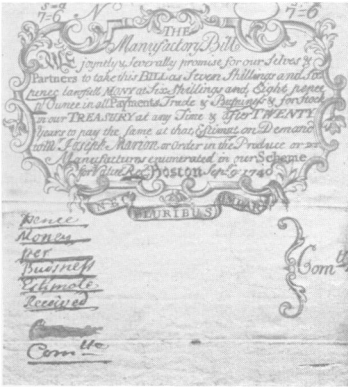 s d
7=6
N
s d
7=6
THE
Manufactory Bill
WE joyntly & severally promise for our Selves &
Partners to take this BILL as Seven Shillings and Six
pence lawfull MONY at Six Shillings and Eight pence
p Ounce in all Payments, Trade & Business & for Stock
in our TREASURY at any Time & after TWENTY
Years to pay the same at that Estimate on Demand
to Mr Joseph Marion or Order in the Produce or
Manufactures enumerated in our Scheme
for Value Recd Boston Sept 9 1740
PLURIBUS
Pence
Money
per
Business
Estimate
Received
Comtte
Comtte